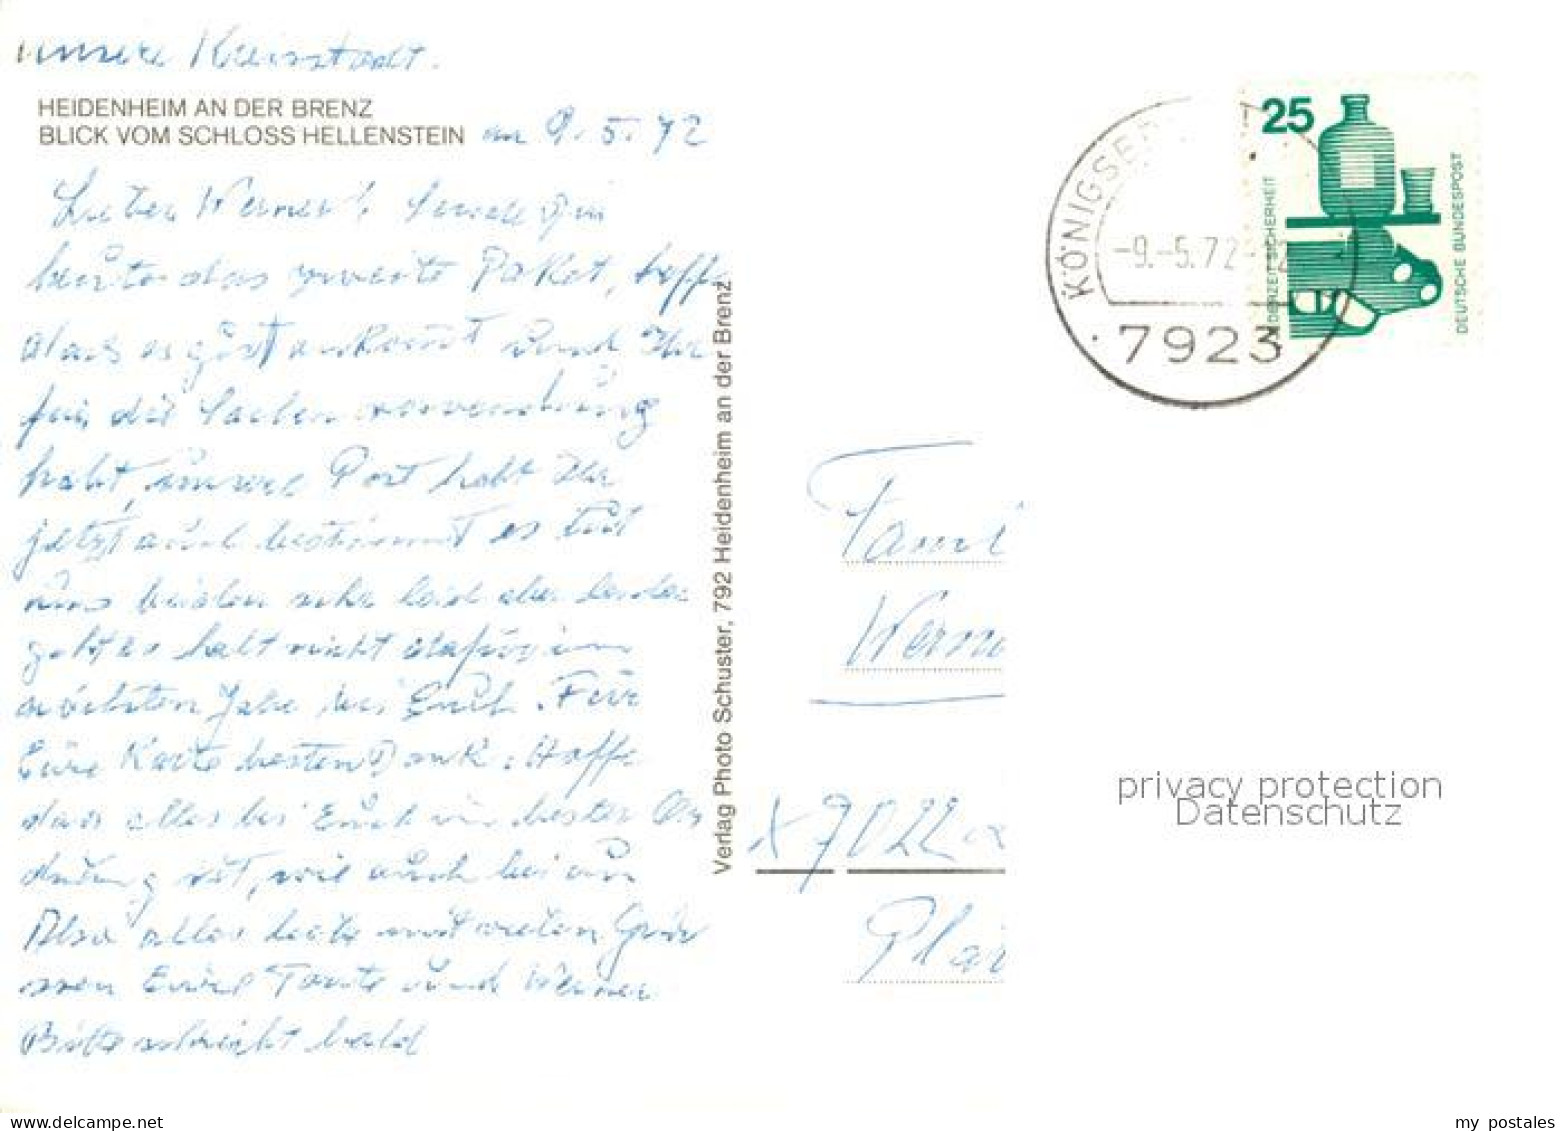 unsere Kreisstadt.
HEIDENHEIM AN DER BRENZ
BLICK VOM SCHLOSS HELLENSTEIN am 9.5.72
Lieber Werner! Sende Dir
heute das zweite Paket, hoffe
dass es gut ankommt und Ihr
für die Sachen verwendung
habt, unsere Post habt Ihr
jetzt auch bestimmt es tut
uns beiden sehr leid aber leider
geht es halt nicht dafür im
nächsten Jahr bei Euch. Für
Eure Karte besten Dank. Hoffe
dass alles bei Euch in bester Or
dnung ist, wie auch bei uns
Also alles liebe mit vielen Grü
ssen Eure Tante und Werner
Bitte schreibt bald
Verlag Photo Schuster, 792 Heidenheim an der Brenz
KÖNIGSB
-9.-5.72-
7923
25
JEDERZEIT SICHERHEIT
DEUTSCHE BUNDESPOST
Famil
Werne
X7022
Pla
privacy protection
Datenschutz
my postales